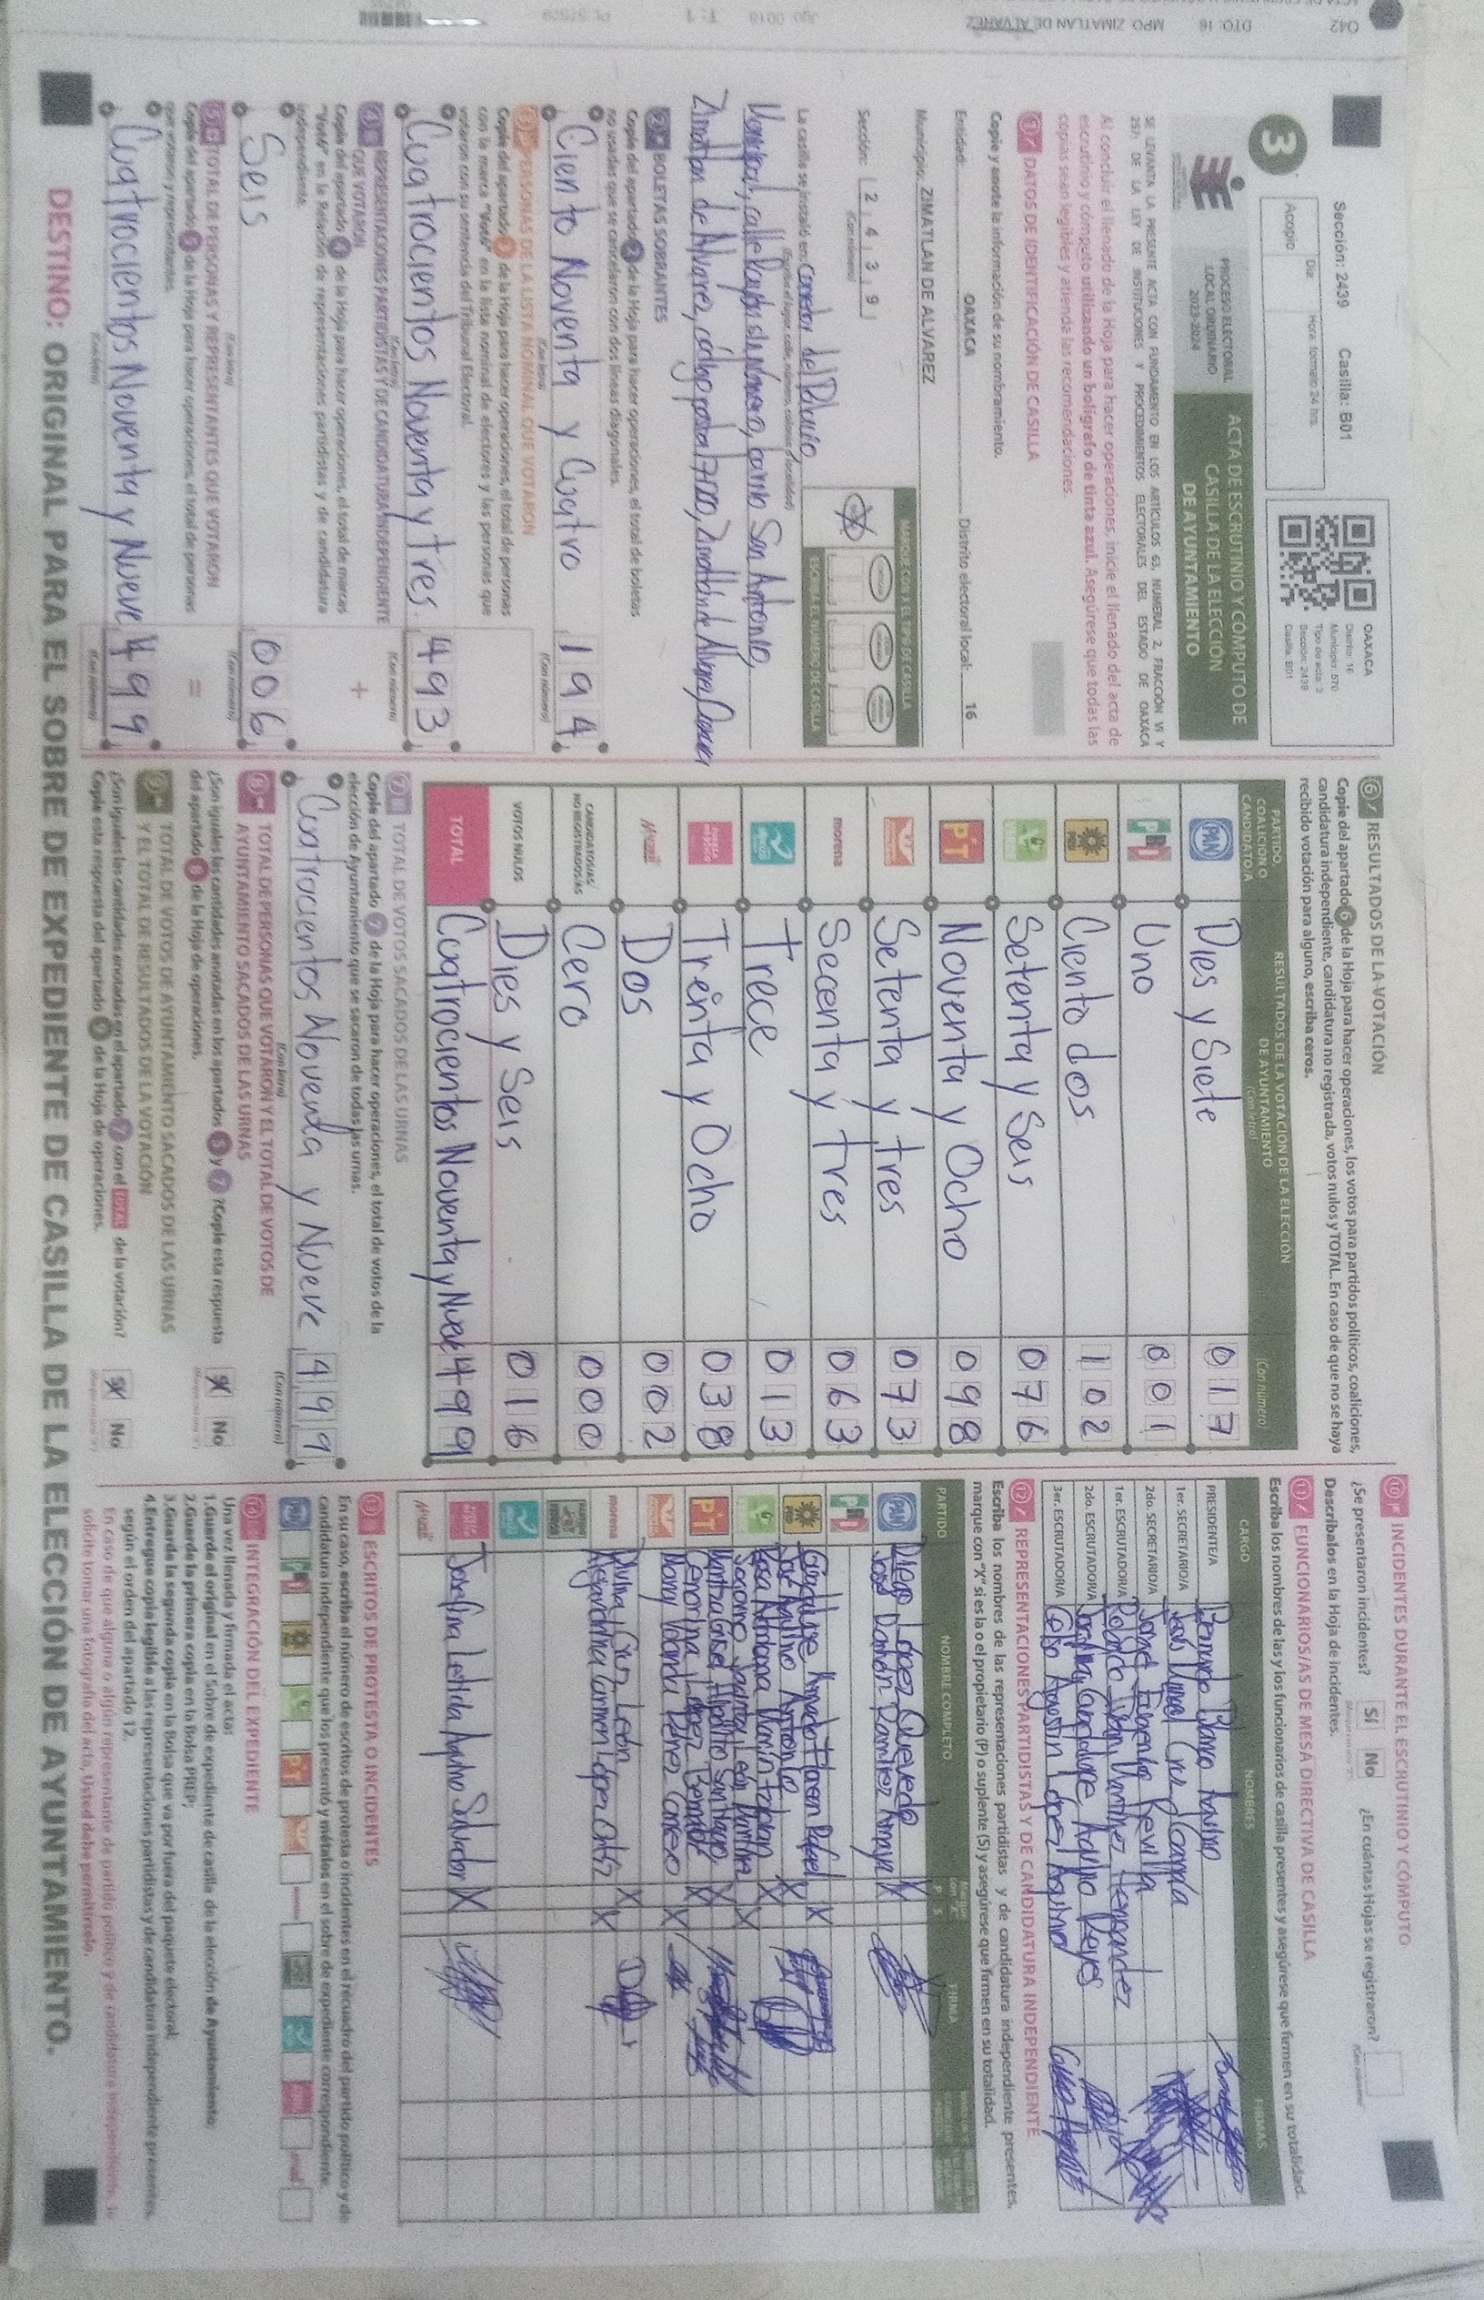 Sección: 2439 Casilla: B01
3
Día: Hora: formato 24 hrs.
Acopio
OAXACA
Distrito: 16
Municipio: 570
Tipo de acta: 2
Sección: 2439
Casilla: B01
PROCESO ELECTORAL
LOCAL ORDINARIO
2023-2024
ACTA DE ESCRUTINIO Y CÓMPUTO DE
CASILLA DE LA ELECCIÓN
DE AYUNTAMIENTO
SE LEVANTA LA PRESENTE ACTA CON FUNDAMENTO EN LOS ARTÍCULOS 63, NUMERAL 2, FRACCIÓN VI Y
257, DE LA LEY DE INSTITUCIONES Y PROCEDIMIENTOS ELECTORALES DEL ESTADO DE OAXACA
Al concluir el llenado de la Hoja para hacer operaciones, inicie el llenado del acta de
escrutinio y cómputo utilizando un bolígrafo de tinta azul. Asegúrese que todas las
copias sean legibles y atienda las recomendaciones.
1 DATOS DE IDENTIFICACIÓN DE CASILLA
Copie y anote la información de su nombramiento.
Entidad: OAXACA Distrito electoral local: 16
Municipio: ZIMATLAN DE ALVAREZ
Sección: 2 4 3 9
(Con número)
MARQUE CON X EL TIPO DE CASILLA
ESCRIBA EL NÚMERO DE CASILLA
La casilla se instaló en: Corredor del Palacio
(Escriba el lugar, calle, número, colonia o localidad)
Municipal, calle sin número, barrio San Antonio,
Zimatlan de Alvarez, código postal 71200, Zimatlán de Alvarez, Oaxaca
2 BOLETAS SOBRANTES
Copie del apartado 2 de la Hoja para hacer operaciones, el total de boletas
no usadas que se cancelaron con dos líneas diagonales.
Ciento Noventa y Cuatro 194
(Con letra) (Con número)
3 PERSONAS DE LA LISTA NOMINAL QUE VOTARON
Copie del apartado 3 de la Hoja para hacer operaciones, el total de personas
con la marca "Votó" en la lista nominal de electores y las personas que
votaron con su sentencia del Tribunal Electoral.
Cuatrocientos Noventa y tres 493
(Con letra) (Con número)
4 REPRESENTACIONES PARTIDISTAS Y DE CANDIDATURA INDEPENDIENTE
QUE VOTARON
+
Copie del apartado 4 de la Hoja para hacer operaciones, el total de marcas
"Votó" en la Relación de representaciones partidistas y de candidatura
independiente.
Seis 006
(Con letra) (Con número)
5 TOTAL DE PERSONAS Y REPRESENTANTES QUE VOTARON
=
Copie del apartado 5 de la Hoja para hacer operaciones, el total de personas
que votaron y representantes.
Cuatrocientos Noventa y Nueve 499
(Con letra) (Con número)
6 RESULTADOS DE LA VOTACIÓN
Copie del apartado 6 de la Hoja para hacer operaciones, los votos para partidos políticos, coaliciones,
candidatura independiente, candidatura no registrada, votos nulos y TOTAL. En caso de que no se haya
recibido votación para alguno, escriba ceros.
PARTIDO,
COALICIÓN O
CANDIDATO/A
RESULTADOS DE LA VOTACIÓN DE LA ELECCIÓN
DE AYUNTAMIENTO
(Con letra) (Con número)
PAN Dies y Siete 017
PRI Uno 001
PRD Ciento dos 102
Setenta y Seis 076
PT Noventa y Ocho 098
Setenta y tres 073
morena Secenta y tres 063
Trece 013
Treinta y Ocho 038
Dos 002
CANDIDATOS/AS
NO REGISTRADOS/AS Cero 000
VOTOS NULOS Dies y Seis 016
TOTAL Cuatrocientos Noventa y Nueve 499
7 TOTAL DE VOTOS SACADOS DE LAS URNAS
Copie del apartado 7 de la Hoja para hacer operaciones, el total de votos de la
elección de Ayuntamiento que se sacaron de todas las urnas.
Cuatrocientos Noventa y Nueve 499
(Con letra) (Con número)
8 TOTAL DE PERSONAS QUE VOTARON Y EL TOTAL DE VOTOS DE
AYUNTAMIENTO SACADOS DE LAS URNAS
¿Son iguales las cantidades anotadas en los apartados 5 y 7? Copie esta respuesta
del apartado 8 de la Hoja de operaciones.
SÍ No
9 TOTAL DE VOTOS DE AYUNTAMIENTO SACADOS DE LAS URNAS
Y EL TOTAL DE RESULTADOS DE LA VOTACIÓN
¿Son iguales las cantidades anotadas en el apartado 7 con el TOTAL de la votación?
Copie esta respuesta del apartado 9 de la Hoja de operaciones.
SÍ No
10 INCIDENTES DURANTE EL ESCRUTINIO Y CÓMPUTO
¿Se presentaron incidentes? SÍ No ¿En cuántas Hojas se registraron?
Descríbalos en la Hoja de incidentes.
11 FUNCIONARIOS/AS DE MESA DIRECTIVA DE CASILLA
Escriba los nombres de las y los funcionarios de casilla presentes y asegúrese que firmen en su totalidad.
CARGO NOMBRES FIRMAS
PRESIDENTE/A Bernardo Blanco Aquino
1er. SECRETARIO/A Cruz
2do. SECRETARIO/A Revilla
1er. ESCRUTADOR/A Martinez Hernandez
2do. ESCRUTADOR/A Guadalupe Aquino Reyes
3er. ESCRUTADOR/A Celso Agustin Lopez Aquino
12 REPRESENTACIONES PARTIDISTAS Y DE CANDIDATURA INDEPENDIENTE
Escriba los nombres de las representaciones partidistas y de candidatura independiente presentes,
marque con "X" si es la o el propietario (P) o suplente (S) y asegúrese que firmen en su totalidad.
PARTIDO NOMBRE COMPLETO P S FIRMA
PAN Diego López Quevedo
José Damián Ramírez Amaya X
PRI
Guadalupe Amado Rafael X
PRD José Antonio X
Rosa X
Socorro León X
PT Santiago X
Cenorina López X
Nancy Yolanda Pérez X
morena Cruz León X
Alejandrina Carmen López Ortiz X
Josefina Leticia Aquino Salvador X
13 ESCRITOS DE PROTESTA O INCIDENTES
En su caso, escriba el número de escritos de protesta o incidentes en el recuadro del partido político y de
candidatura independiente que los presentó y métalos en el sobre de expediente correspondiente.
INTEGRACIÓN DEL EXPEDIENTE
Una vez llenada y firmada el acta:
1.Guarde el original en el Sobre de expediente de casilla de la elección de Ayuntamiento;
2.Guarde la primera copia en la Bolsa PREP;
3.Guarda la segunda copia en la Bolsa que va por fuera del paquete electoral;
4.Entregue copia legible a las representaciones partidistas y de candidatura independiente presentes,
según el orden del apartado 12.
En caso de que alguna o algún representante de partido político y de candidatura independiente, le
solicite tomar una fotografía del acta, Usted debe permitírselo.
DESTINO: ORIGINAL PARA EL SOBRE DE EXPEDIENTE DE CASILLA DE LA ELECCIÓN DE AYUNTAMIENTO.